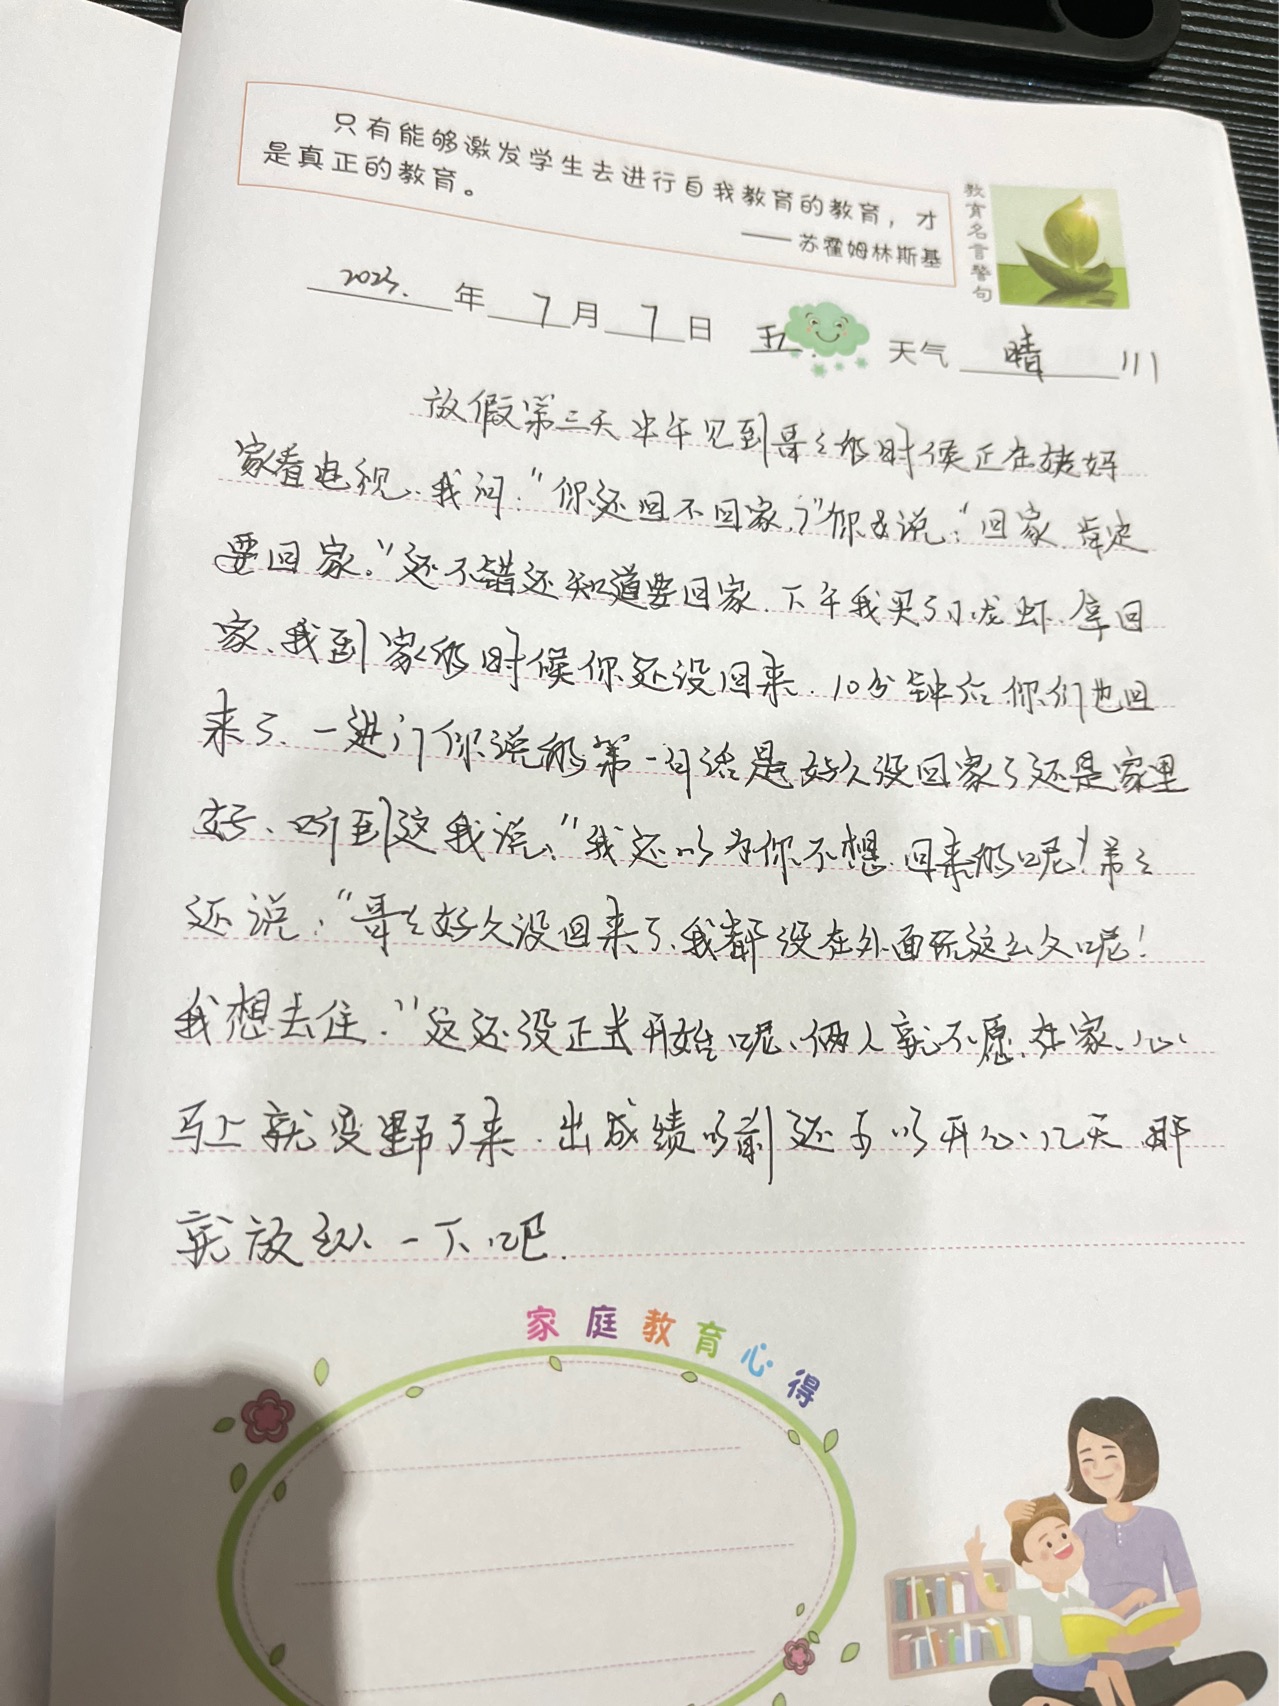 只有能够激发学生去进行自我教育的教育，才
是真正的教育。
——苏霍姆林斯基
教育名言警句
2023.年7月7日 五. 天气晴
放假第三天中午见到哥哥的时候正在姥妈
家看电视.我问:"你还回不回家.?"你却说:"回家 肯定
要回家."还不错还知道要回家.下午我买了小龙虾.拿回
家.我到家的时候你还没回来.10分钟后你们也回
来了.一进门你说的第一句话是好久没回家了还是家里
好.听到这我说:"我还以为你不想.回来的呢!"弟弟
还说:"哥哥好久没回来了.我都没在外面玩这么久呢!
我想去住."这还没正式开始呢.俩人就不愿.在家.心
马上就变野了来.出成绩以前还可以开心几天 那
就放纵一下吧.
家庭教育心得